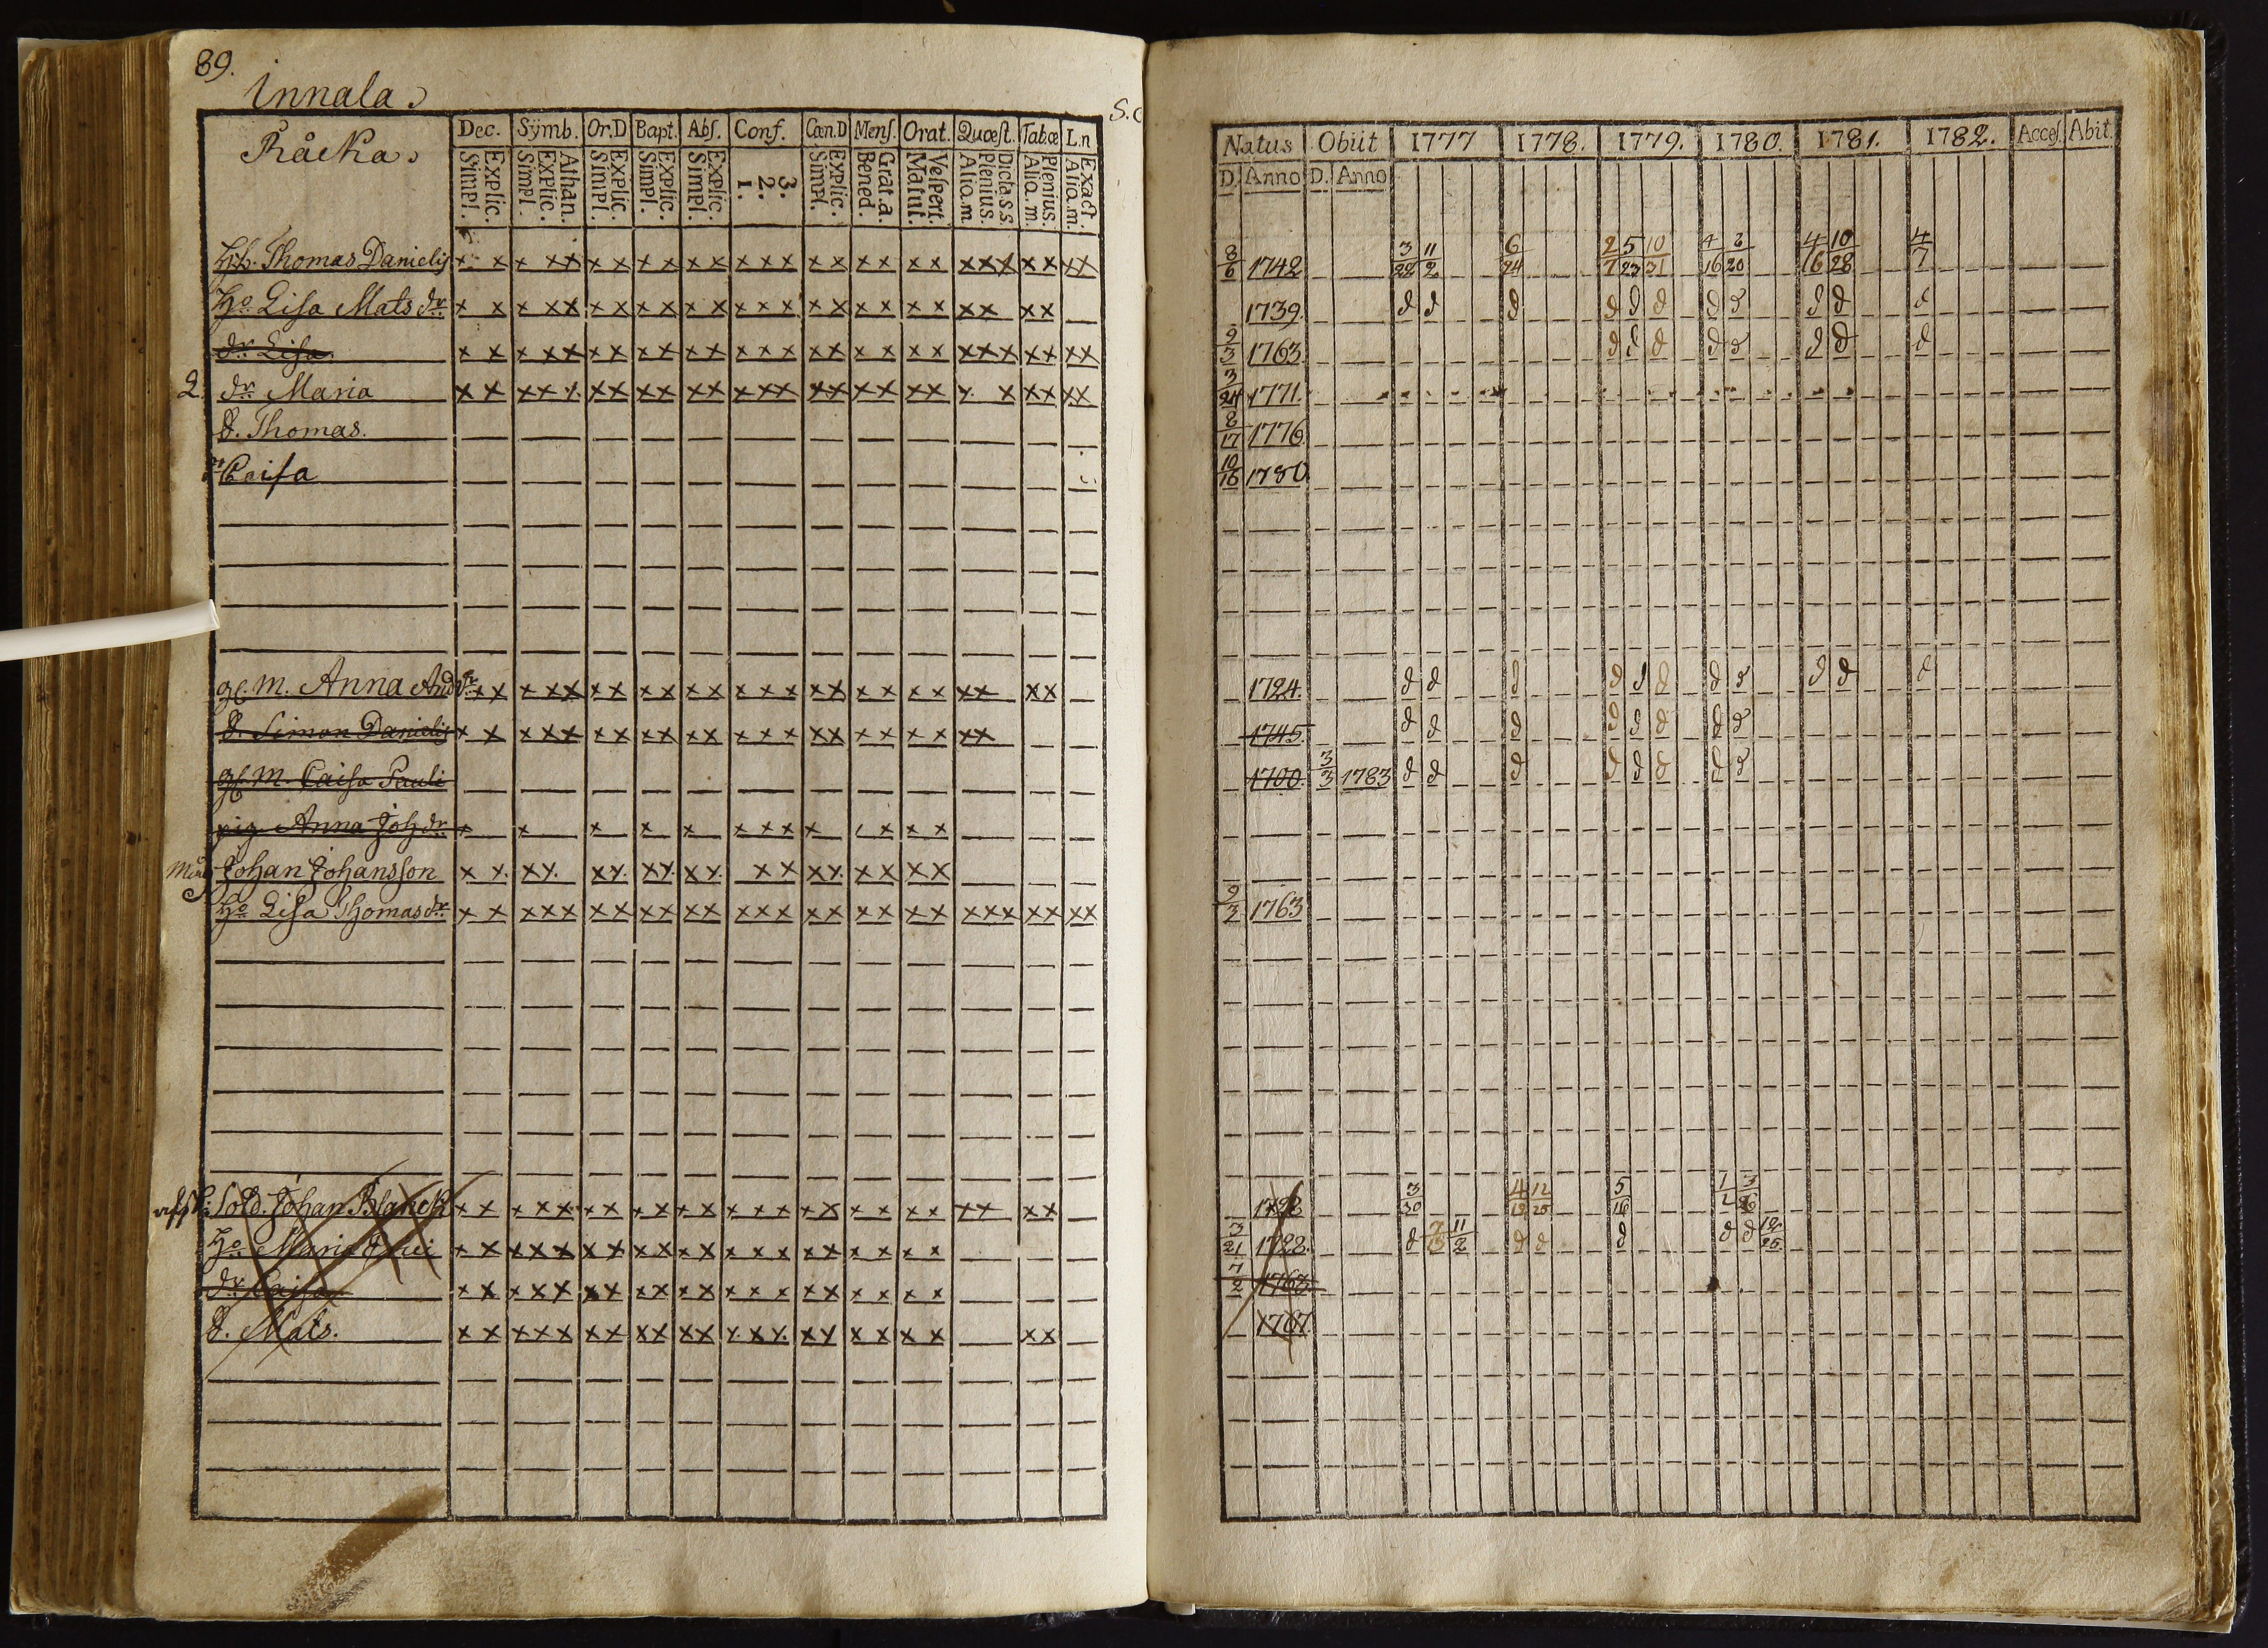 89.
Innala.
Råcka.
Dec. Sÿmb. Or.D Bapt. Abſ. Conf. Cœn.D Menſ. Orat. Quœſt. Tab.œ L.n
Explic. Simpl. Athan. Explic. Simpl. Explic. Simpl. Explic. Simpl. Explic. Simpl. 3. 2. 1. Explic. Simpl. Grat.a. Bened. Veſpert. Matut. Dicta.s.s. Plenius. Alio.m. Plenius. Alia.m. Exact. Alia.m.
Thomas Danielis x x x xx xx xx xx xxx xx xx xx xxx xx xx
Ho. Lisa Mats dr x x x xx xx xx xx xxx xx xx xx xx xx
dr Lisa x x x xx xx xx xx xxx xx xx xx xxx xx xx
2. dr Maria x x xxx xx xx xx xxx xx xx xx x x xx xx
S. Thomas.
dr Caisa
ge. m. Anna And dr xx x xx xx xx xx xxx xx xx xx xx xx
S. Simon Danielis x x xxx xx xx xx xxx xx xx xx xx
ge. m. Caisa Pauli
pig. Anna Joh dr x x x x x xxx x xx xx
Johan Johansson x x xx xx xx xx xx xx xx xx
Ho. Lisa Thomas dr x x xxx xx xx xx xxx xx xx xx xxx xx xx
Sold. Johan Blanck x x x xx xx xx xx xxx xx xx xx xx xx
Ho. Maria x x xxx xx xx xx xxx xx xx xx
dr Caisa x x xxx xx xx xx xxx xx xx xx
S. Mats. x x xxx xx xx xx xxx xx xx xx xx
Natus Obiit 1777 1778. 1779. 1780. 1781. 1782. Acceſ. Abit.
D. Anno D. Anno
8/6 1742 3/28 11/2 6/24 2/7 5/23 10/31 4/16 8/20 4/16 10/28 4/7
1739. d d d d d d d d d d d
9/3 1763. d d d d d d d d
3/24 1771.
8/17 1776.
10/16 1780.
1724. d d d d d d d d d d d
1745. d d d d d d d d
1700. 3/3 1783 d d d d d d d d
9/3 1763
1728 3/30 4/19 12/20 5/16 1/2 3/26
3/21 1728. d 7/13 11/2 d d d d d 12/25
7/2 1763
1767